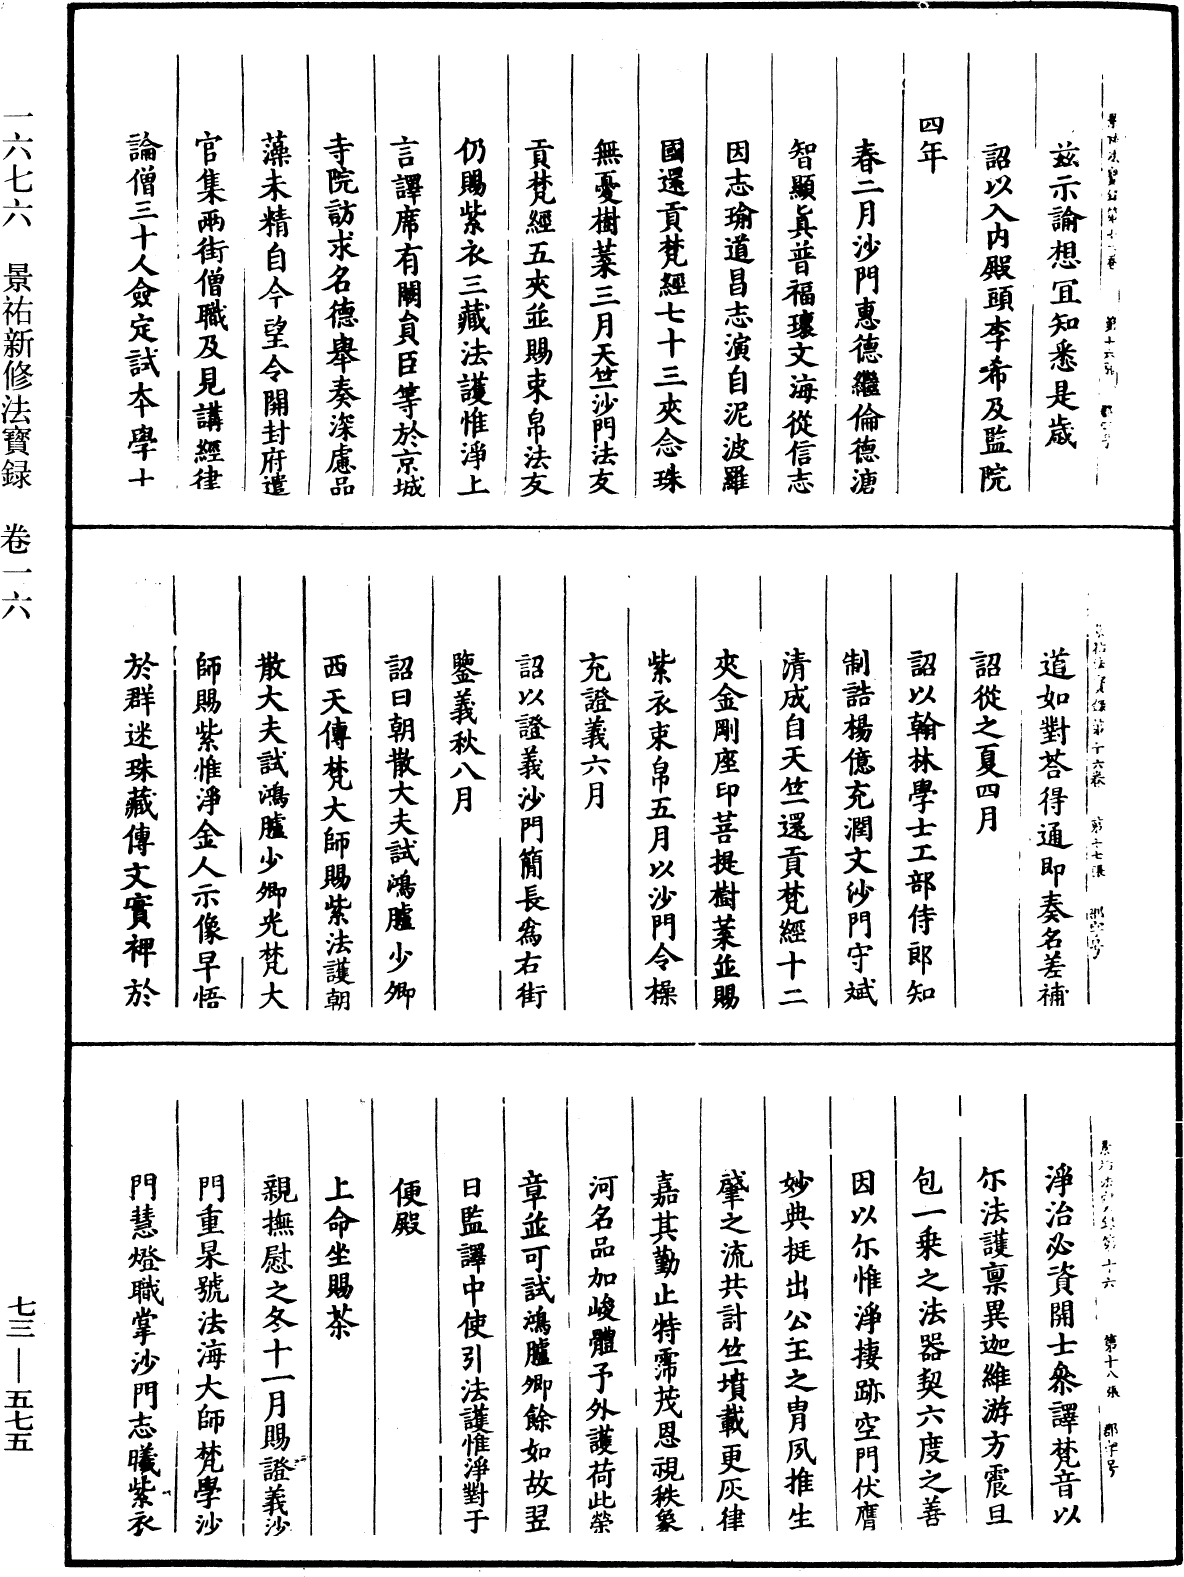 茲示諭想宜知悉是歲
詔以入內殿頭李希及監院
四年
春二月沙門惠德繼倫德溏
智顯真普福瓌文海從信志
因志瑜道昌志演自泥波羅
國還貢梵經七十三夾念珠
無憂樹葉三月天竺沙門法友
貢梵經五夾並賜束帛法友
仍賜紫衣三藏法護惟淨上
言譯席有闕員臣等於京城
寺院訪求名德舉奏深慮品
藻未精自今望令開封府遣
官集兩街僧職及見講經律
論僧三十人僉定試本學十
道如對荅得通即奏名差補
詔從之夏四月
詔以翰林學士工部侍郎知
制誥楊億充潤文沙門守斌
清成自天竺還貢梵經十二
夾金剛座印菩提樹葉並賜
紫衣束帛五月以沙門令操
充證義六月
詔以證義沙門簡長為右街
鑒義秋八月
詔曰朝散大夫試鴻臚少卿
西天傳梵大師賜紫法護朝
散大夫試鴻臚少卿光梵大
師賜紫惟淨金人示像早悟
於群迷珠藏傳文實裨於
淨治必資開士叅譯梵音以
尒法護禀異迦維游方震旦
包一乘之法器契六度之善
因以尒惟淨棲跡空門伏膺
妙典挺出公王之胄夙推生
肇之流共討竺墳載更灰律
嘉其勤止特霈茂恩視秩象
河名品加峻體予外護荷此榮
章並可試鴻臚卿餘如故翌
日監譯中使引法護惟淨對于
便殿
上命坐賜茶
親撫慰之冬十一月賜證義沙
門重杲號法海大師梵學沙
門慧燈職掌沙門志曦紫衣
一六七六　景祐新修法寶録　卷一六
七三—五七五